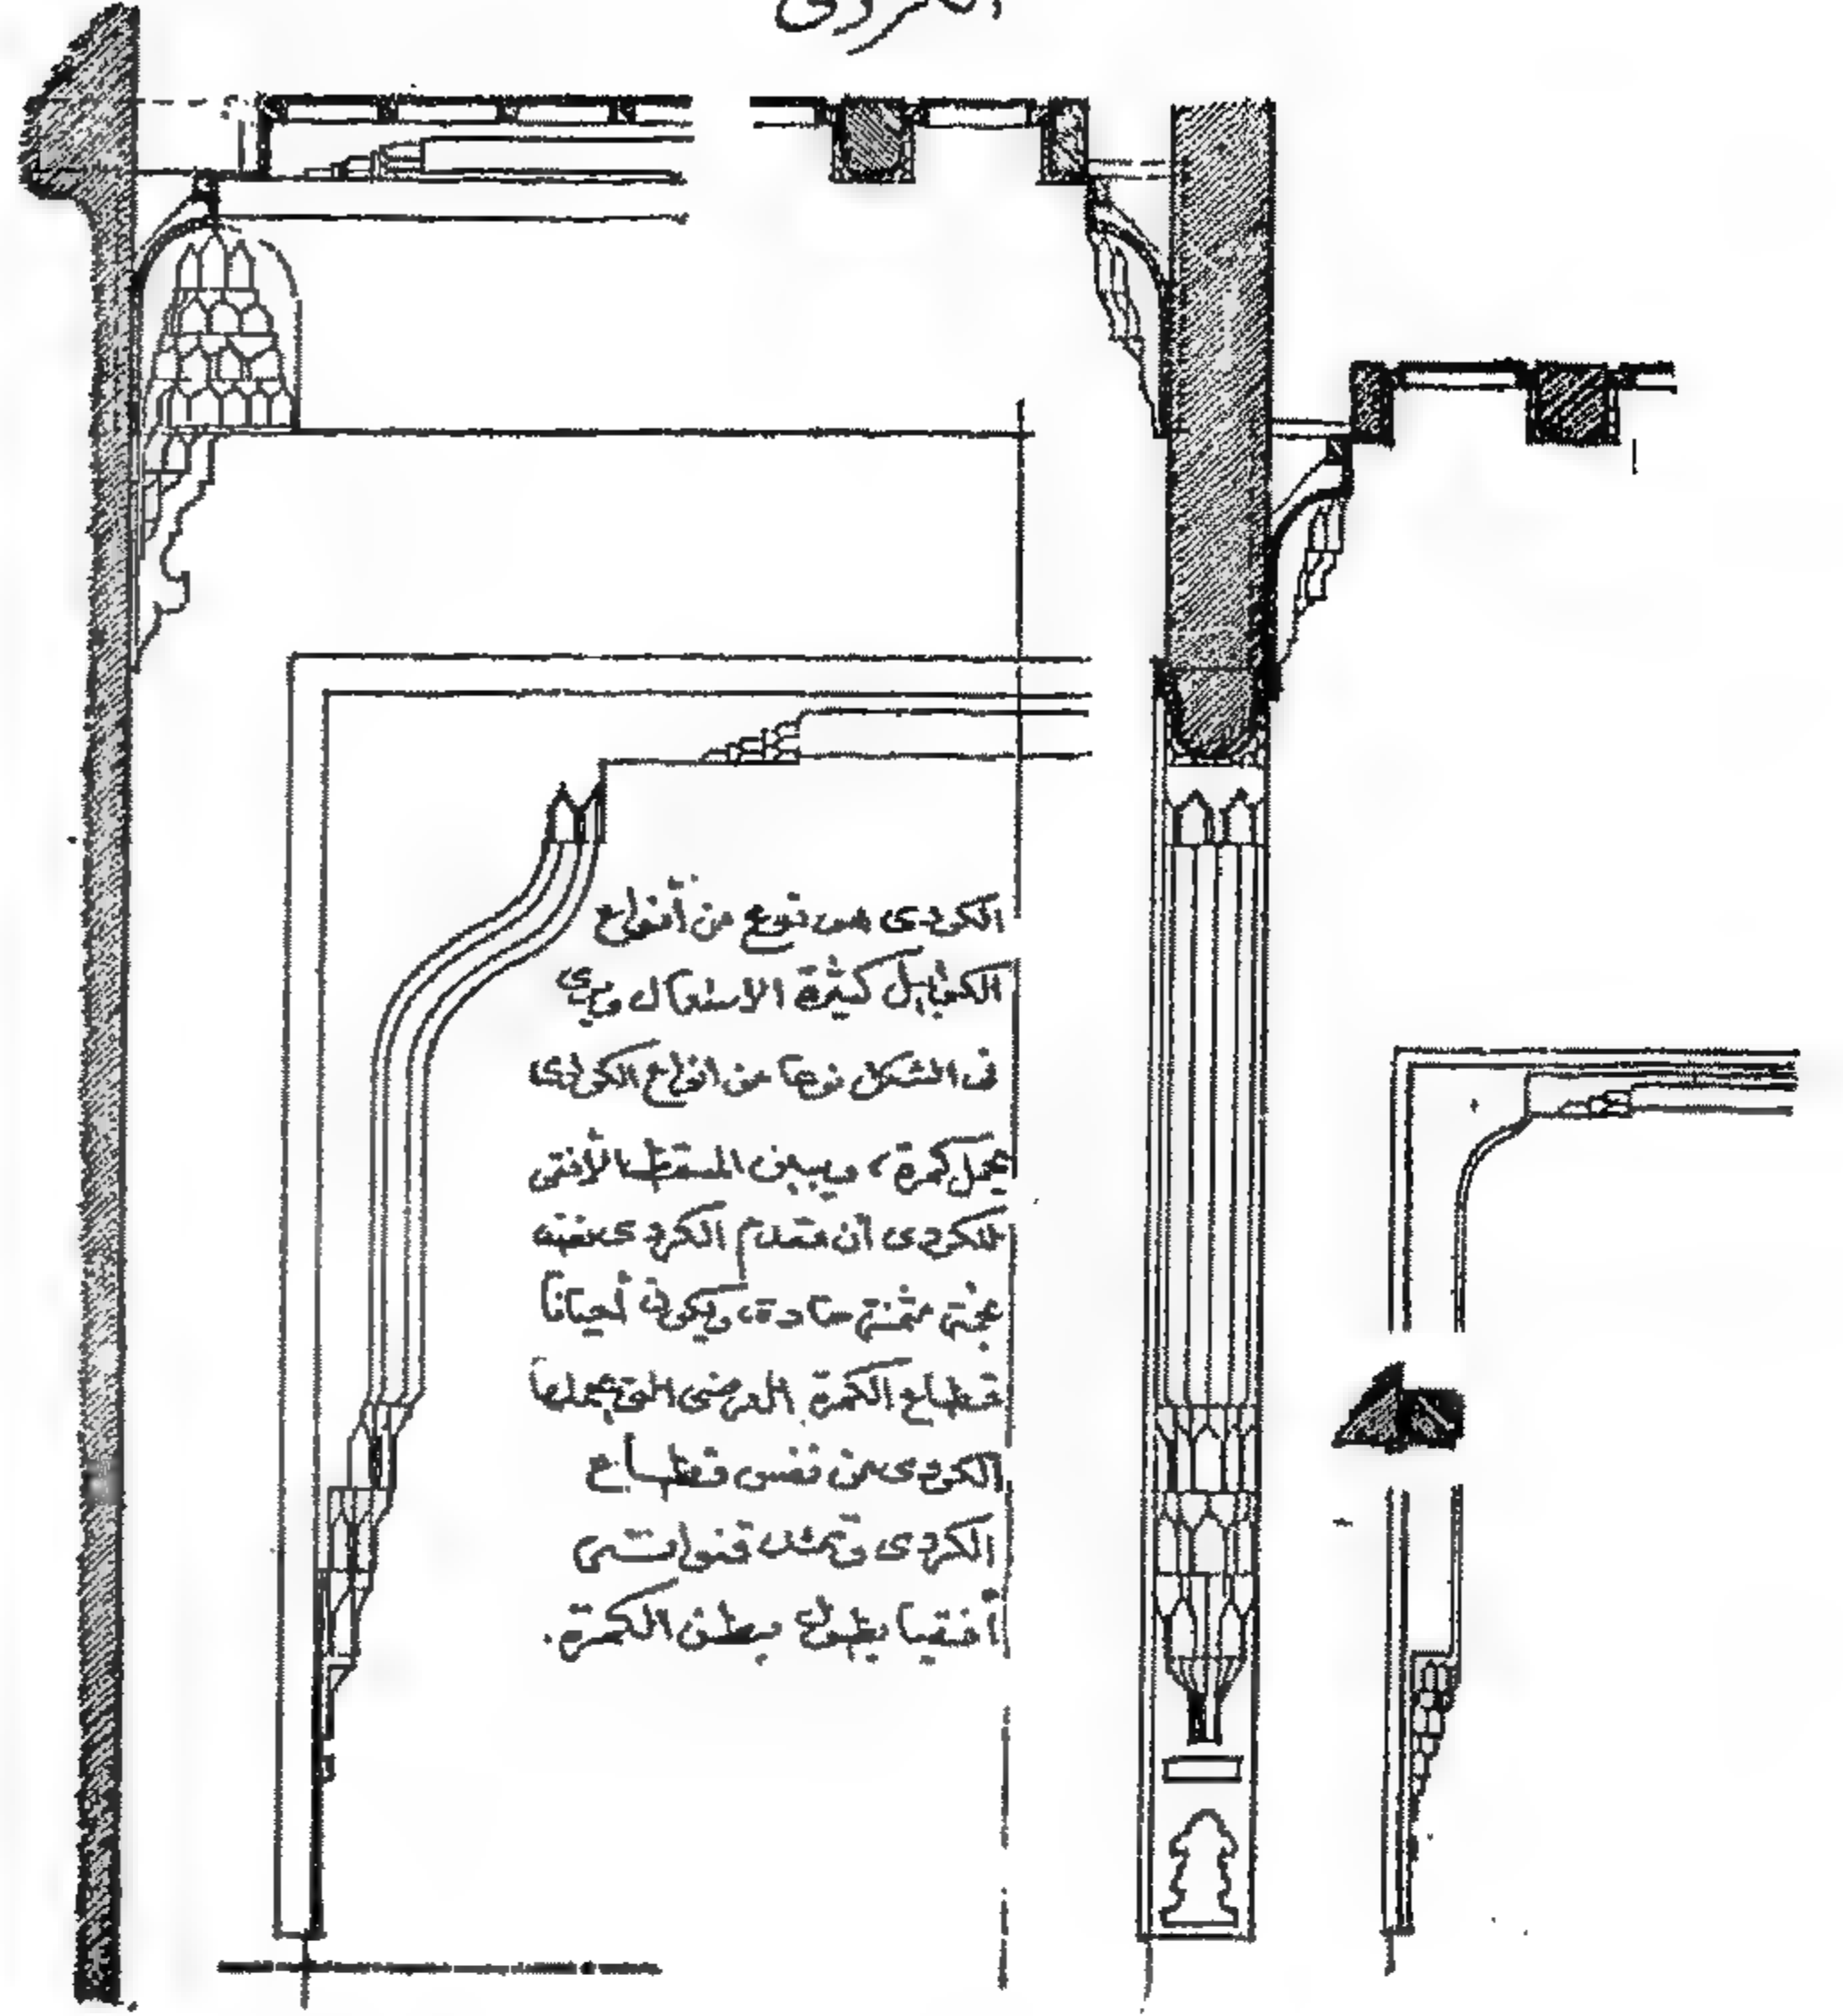 الكردى هو نوع من أنواع
الكوابيل كثيرة الاستعمال ونرى
فى الشكل نوعا من انواع الكرادى
يحمل كمرة، ويبين المسقط الأفقى
للكردى أن مقدم الكردى نفسه
مثمنة عادة، ويكون أحيانا
قطاع الكمرة العرضى التى يحملها
الكردى من نفس قطاع
الكردى وتمتد قنواته
أفقيا بطول بطن الكمرة.